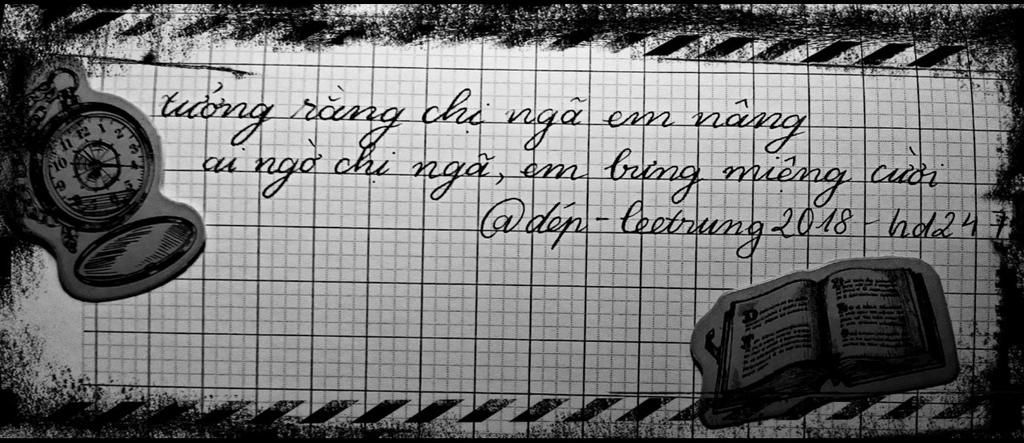 tưởng rằng chị ngã em nâng
ai ngờ chị ngã, em bưng miệng cười
@dép - leetrung2018 - hd247